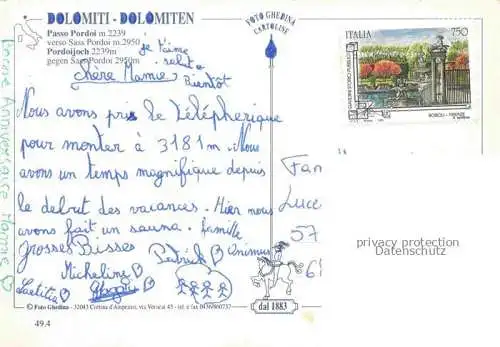 DOLOMITI - DOLOMITEN
Passo Pordoi m.2239
verso Sass Pordoi m.2950
Pordoijoch 2239m
gegen Sass Pordoi 2950m
FOTO GHEDINA
CARTOLINE
ITALIA 750
BOBOLI - FIRENZE
je t'aime
salut
Bientôt
chère Mamie
Nous avons pris le télépherique
pour monter à 3181 m. Nous
avons un temps magnifique depuis
le debut des vacances. Hier nous
avons fait un sauna. famille
Grosses Bisses Patrick
Micheline
Laetitia
Bonne Anniversaire Mamie
Fan
Luce
57
6
privacy protection
Datenschutz
dal 1883
© Foto Ghedina - 32043 Cortina d'Ampezzo, via Verocai 45 - tel. e fax 0436/860737
49.4